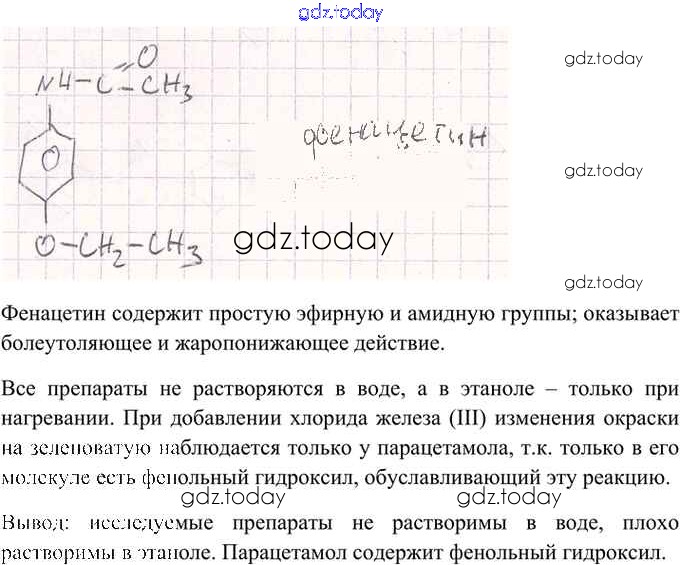 gdz.today
gdz.today
NH-C=O-CH3
фенацетин
gdz.today
O-CH2-CH3
gdz.today
gdz.today
Фенацетин содержит простую эфирную и амидную группы; оказывает
болеутоляющее и жаропонижающее действие.
Все препараты не растворяются в воде, а в этаноле – только при
нагревании. При добавлении хлорида железа (III) изменения окраски
на зеленоватую наблюдается только у парацетамола, т.к. только в его
молекуле есть фенольный гидроксил, обуславливающий эту реакцию.
gdz.today
gdz.today
Вывод: исследуемые препараты не растворимы в воде, плохо
растворимы в этаноле. Парацетамол содержит фенольный гидроксил.